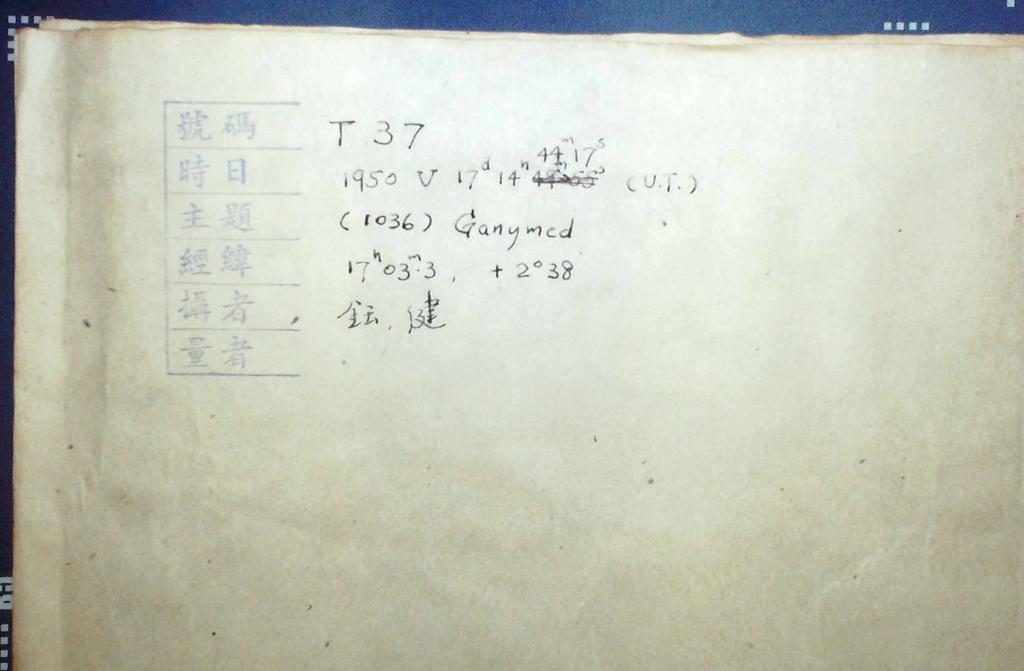 號碼 T 37
時日 1950 V 17ᵈ 14ʰ 44ᵐ17ˢ (U.T.)
主題 (1036) Ganymed
經緯 17ʰ03ᵐ.3, +2°38
攝者 鈺, 健
量者